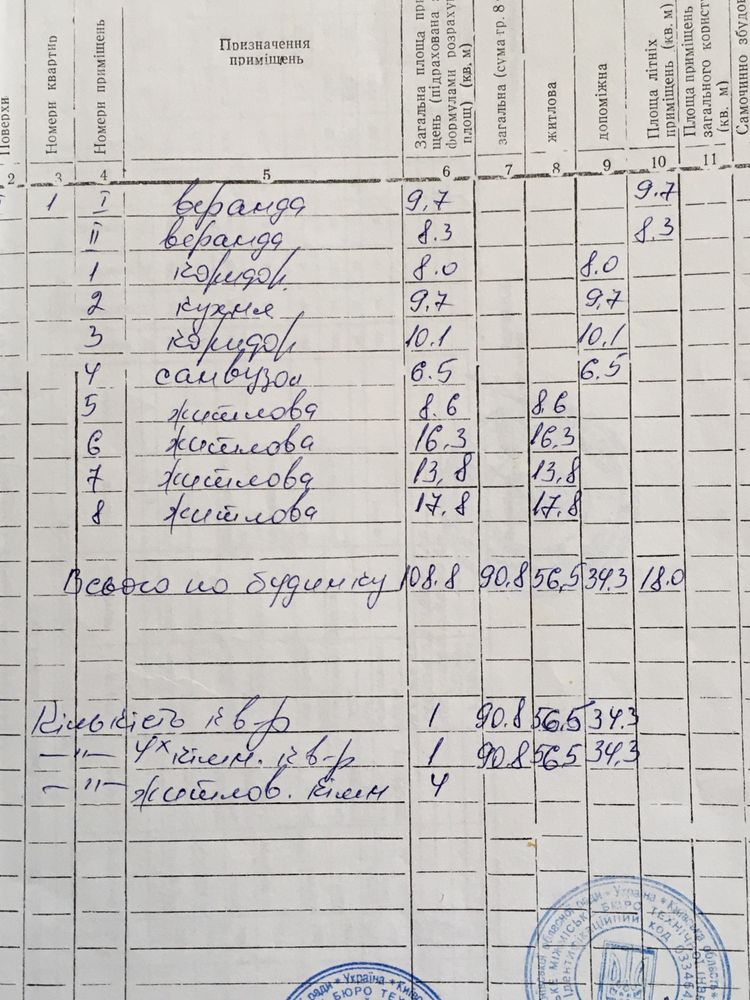 Поверхи
Номери квартир
Номери приміщень
Призначення
приміщень
Загальна площа при
щень (підрахована з
формулами розраху
площ) (кв. м)
загальна (сума гр. 8
житлова
допоміжна
Площа літніх
приміщень (кв. м)
Площа приміщень
загального корист
(кв. м)
Самочинно збудо
2 3 4 5 6 7 8 9 10 11
1 I веранда 9,7 9.7
II веранда 8.3 8.3
1 коридор 8.0 8.0
2 кухня 9,7 9,7
3 коридор 10.1 10,1
4 санвузол 6.5 6.5
5 житлова 8.6 8.6
6 житлова 16,3 16,3
7 житлова 13,8 13,8
8 житлова 17,8 17,8
Всього по будинку 108.8 90.8 56,5 34.3 18.0
Кількість кв-р 1 90.8 56,5 34.3
—"— 4х кімн. кв-р 1 90.8 56,5 34.3
—"— житлов. кімн 4
ради * Україна * Київсь
БЮРО ТЕ
ої ради * Україна * Київська область
МІЖМІСЬК БЮРО ТЕХНІЧ
Ідентифікаційний код